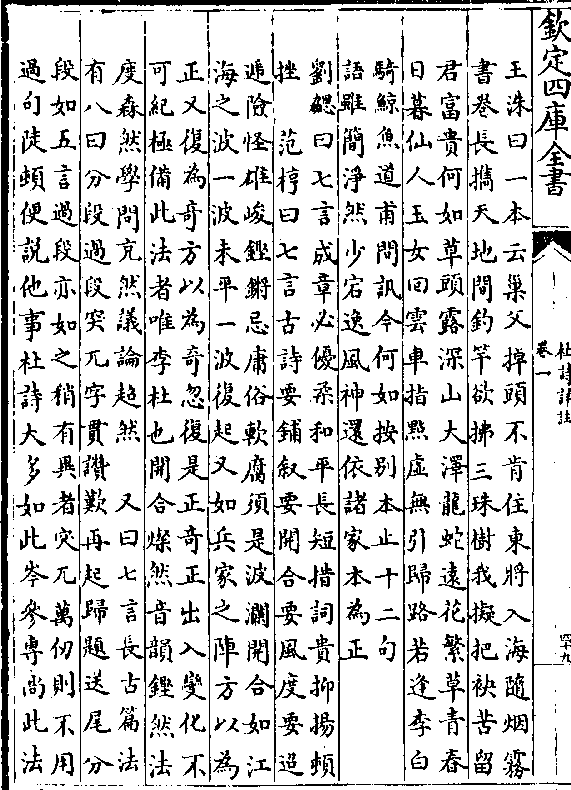 欽定四庫全書
杜詩詳註
卷一
四十九
王洙曰一本云巢父掉頭不肯住東將入海隨烟霧
書卷長攜天地間釣竿欲拂三珠樹我擬把袂苦留
君富貴何如草頭露深山大澤龍蛇遠花繁草青春
日暮仙人玉女回雲車指點虛無引歸路若逢李白
騎鯨魚道甫問訊今何如按别本止十二句
語雖簡淨然少宕逸風神還依諸家本為正
劉勰曰七言成章必優柔和平長短措詞貴抑揚頓
挫　范梈曰七言古詩要鋪叙要開合要風度要迢
遞險怪雄峻鏗鏘忌庸俗軟腐須是波瀾開合如江
海之波一波未平一波復起又如兵家之陣方以為
正又復為奇方以為奇忽復是正奇正出入變化不
可紀極備此法者唯李杜也開合燦然音韻鏗然法
度森然學問充然議論超然　又曰七言長古篇法
有八曰分段過段突兀字貫讚歎再起歸題送尾分
段如五言過段亦如之稍有異者突兀萬仞則不用
過句陡頓便説他事杜詩大多如此岑參專尚此法